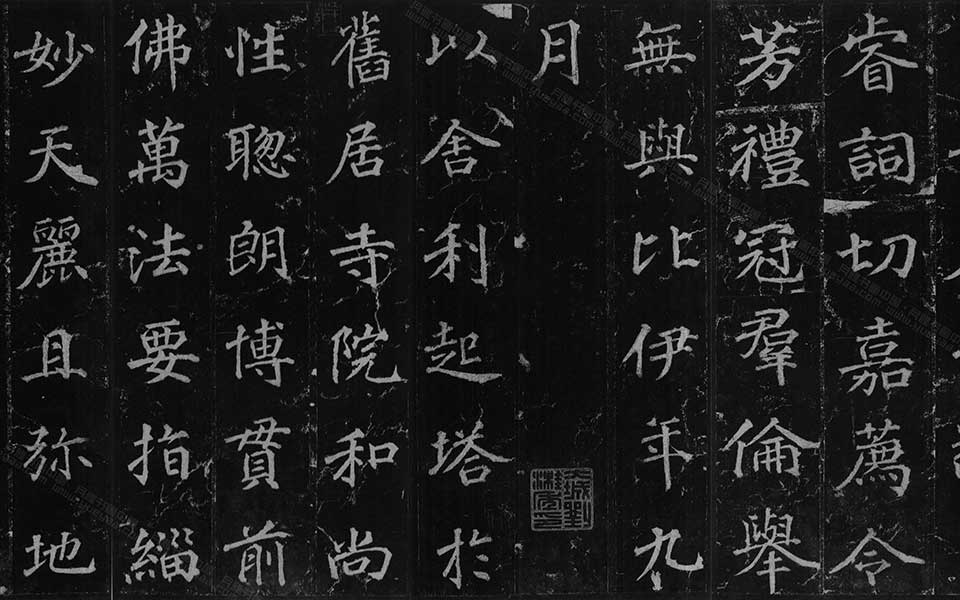 睿詞切嘉薦令
芳禮冠羣倫舉
無與比伊年九
月
以舍利起塔於
舊居寺院和尚
性聰朗博貫前
佛萬法要指緇
妙天麗且弥地